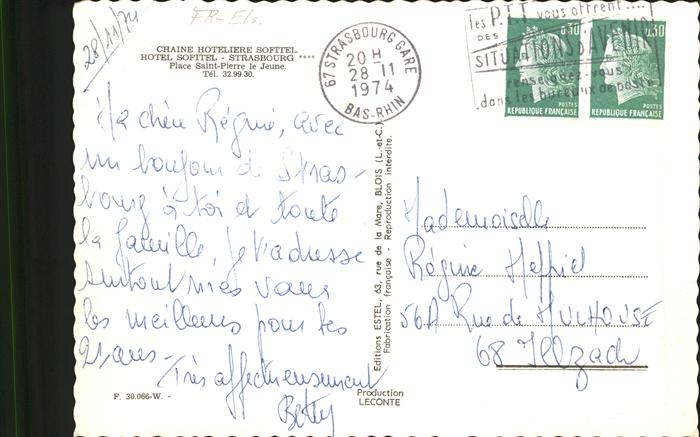 28/11/74
FR-Els.
CHAINE HOTELIERE SOFITEL
HOTEL SOFITEL - STRASBOURG ****
Place Saint-Pierre le Jeune.
Tél. 32.99.30.
67 STRASBOURG GARE
20 H
28 11
1974
BAS-RHIN
les P.T.T vous offrent....
DES
SITUATIONS D'AVENIR
renseignez-vous
dans les bureaux de poste
0,50
0,50
POSTES
POSTES
REPUBLIQUE FRANÇAISE
REPUBLIQUE FRANÇAISE
Ma chère Régine, avec
un bonjour de Stras-
bourg à toi et toute
la famille, je t'adresse
surtout mes vœux
les meilleurs pour tes
21 ans -
Très affectueusement
Betty
Editions ESTEL, 63, rue de la Mare, BLOIS (L.-et-C.)
Fabrication française - Reproduction interdite.
Mademoiselle
Régine
56A Rue de MULHOUSE
68 Illzach
F. 30.066-W. -
Production
LECONTE